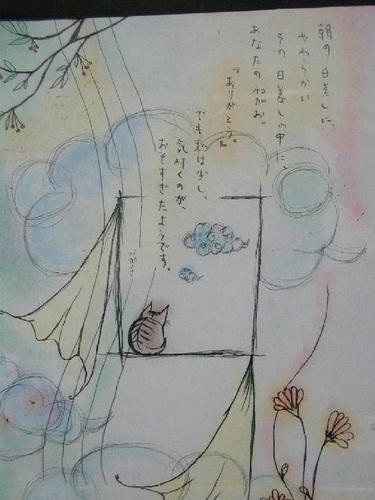 朝の日差しに、
やわらかい
その日差しの中に、
あなたのねがお。
"ありがとう"
でも私は少し、
気付くのが、
おそすぎたようです。